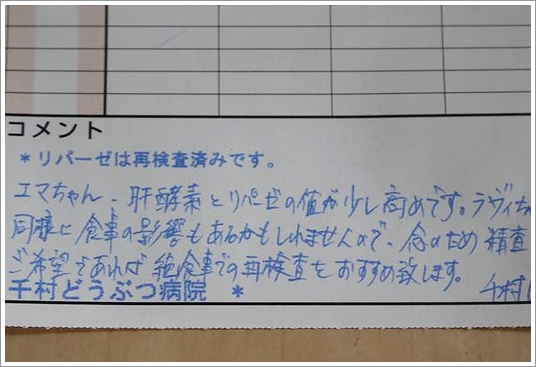 コメント
*リパーゼは再検査済みです。
エマちゃん、肝酵素とリパーゼの値が少し高めです。ラヴィちゃ
同様に食事の影響もあるかもしれませんので、念のため精査
ご希望であれば絶食事での再検査をおすすめ致します。
千村どうぶつ病院 * 千村